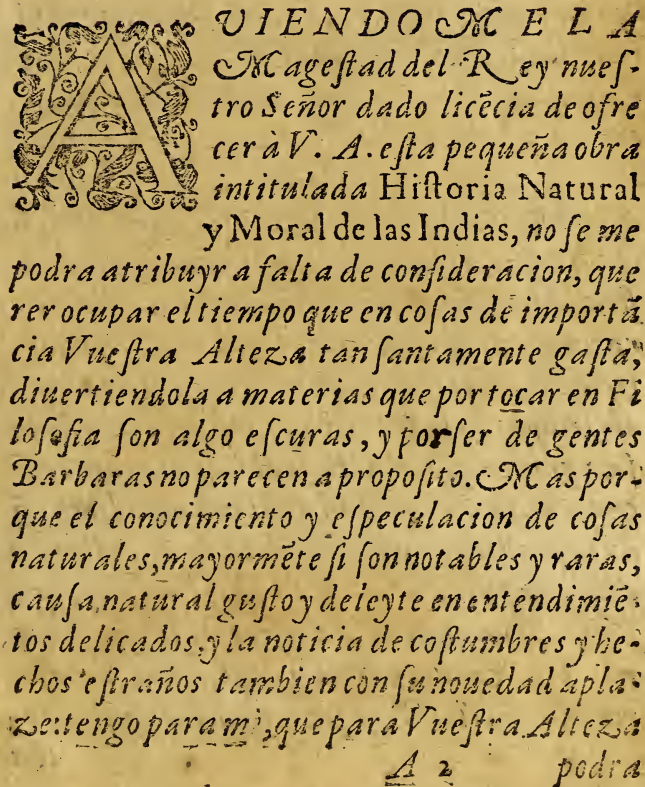 AVIENDOME LA
Magestad del Rey nueſ-
tro Señor dado licẽcia de ofre
cer à V. A. eſta pequeña obra
intitulada Hiſtoria Natural
y Moral de las Indias, no ſe me
podra atribuyr a falta de conſideracion, que
rer ocupar el tiempo que en coſas de importã
cia Vueſtra Alteza tan ſantamente gaſta,
diuertiendola a materias que por tocar en Fi
loſofia ſon algo eſcuras, y por ſer de gentes
Barbaras no parecen a propoſito. Mas por-
que el conocimiento y eſpeculacion de coſas
naturales, mayormẽte ſi ſon notables y raras,
cauſa natural guſto y deleyte en entendimiẽ-
tos delicados, y la noticia de coſtumbres y he-
chos eſtraños tambien con ſu nouedad apla-
ze: tengo para mi, que para Vueſtra Alteza
A 2 podra